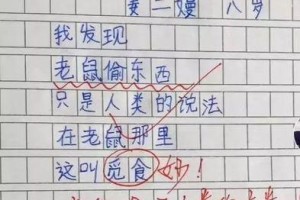 黄二嫚 八岁
我发现
老鼠偷东西
只是人类的说法
在老鼠那里
这叫觅食 妙!